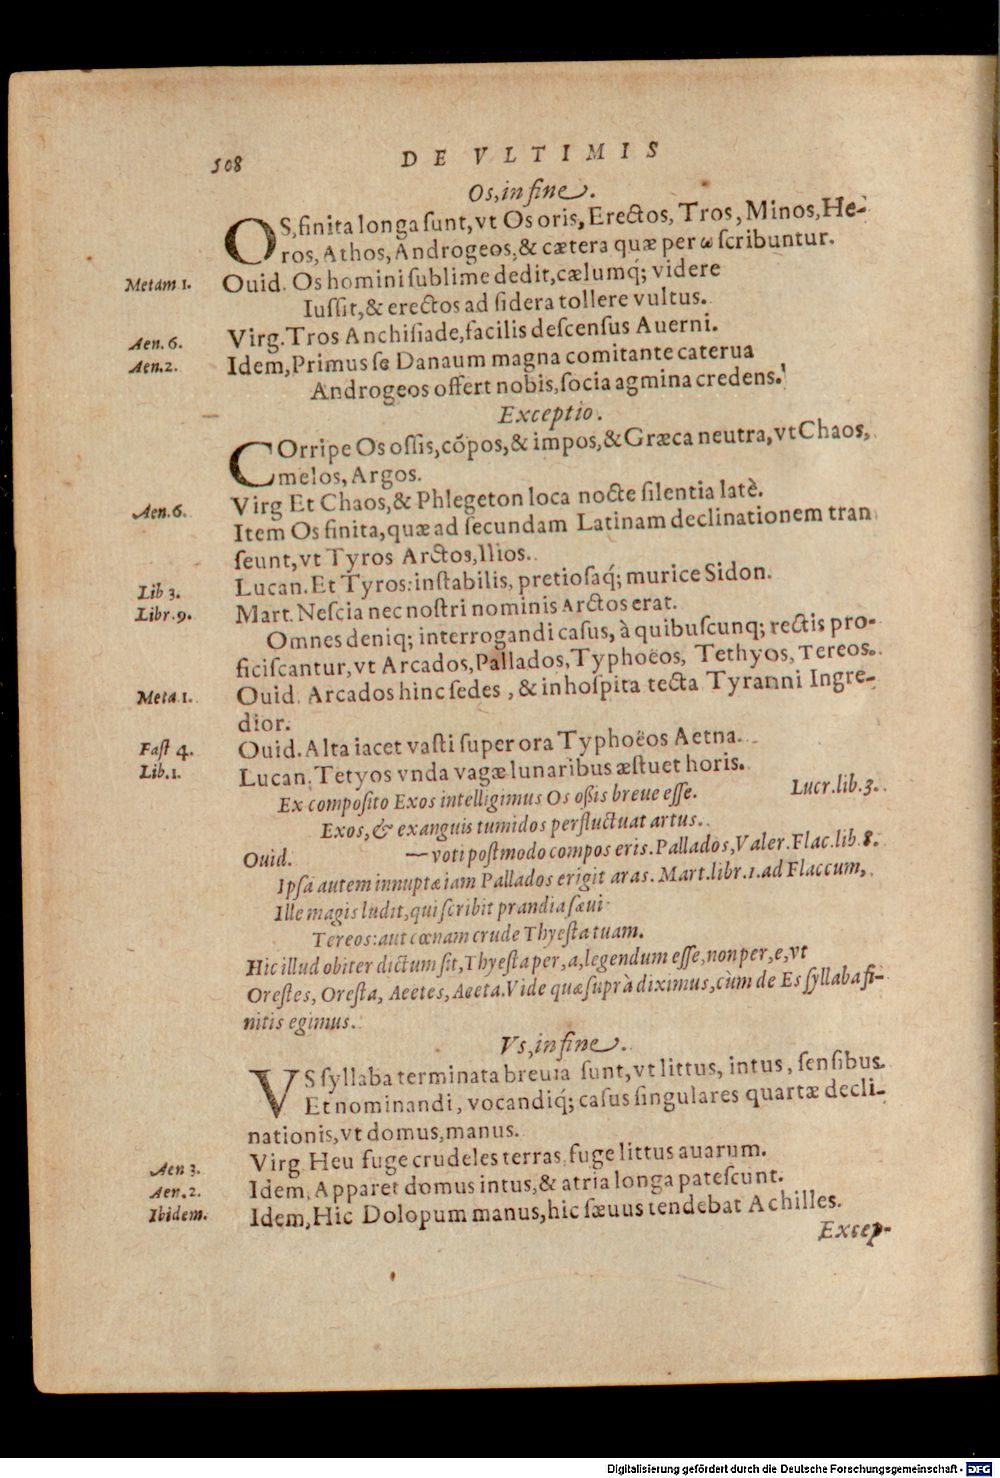 508 DE VLTIMIS
Os, in fine.
OS, finita longa ſunt, vt Os oris, Erectos, Tros, Minos, He-
ros, Athos, Androgeos, & cætera quæ per ω ſcribuntur.
Metam 1. Ouid. Os homini ſublime dedit, cælumq́; videre
Iuſſit, & erectos ad ſidera tollere vultus.
Aen. 6. Virg. Tros Anchiſiade, facilis deſcenſus Auerni.
Aen. 2. Idem, Primus ſe Danaum magna comitante caterua
Androgeos offert nobis, ſocia agmina credens.
Exceptio.
COrripe Os oſſis, cópos, & impos, & Græca neutra, vt Chaos,
melos, Argos.
Aen. 6. Virg Et Chaos, & Phlegeton loca nocte ſilentia latè.
Item Os finita, quæ ad ſecundam Latinam declinationem tran
ſeunt, vt Tyros Arctos, Ilios.
Lib 3. Lucan. Et Tyros: inſtabilis, pretioſaq́; murice Sidon.
Libr. 9. Mart. Neſcia nec noſtri nominis Arctos erat.
Omnes deniq; interrogandi caſus, à quibuſcunq; rectis pro-
ficiſcantur, vt Arcados, Pallados, Typhoëos, Tethyos, Tereos.
Meta. 1. Ouid. Arcados hinc ſedes, & inhoſpita tecta Tyranni Ingre-
dior.
Faſt 4. Ouid. Alta iacet vaſti ſuper ora Typhoëos Aetna.
Lib. 1. Lucan. Tetyos vnda vagæ lunaribus æſtuet horis.
Ex compoſito Exos intelligimus Os oßis breue eſſe. Lucr. lib. 3.
Exos, & exanguis tumidos perfluctuat artus.
Ouid. — voti poſtmodo compos eris. Pallados, Valer. Flac. lib. 8.
Ipſa autem innuptæ iam Pallados erigit aras. Mart. libr. 1. ad Flaccum,
Ille magis ludit, qui ſcribit prandia ſæui
Tereos: aut cœnam crude Thyeſta tuam.
Hic illud obiter dictum ſit, Thyeſta per, a, legendum eſſe, non per, e, vt
Oreſtes, Oreſta, Aeetes, Aeeta. Vide quæ ſuprà diximus, cùm de Es ſyllaba fi-
nitis egimus.
Vs, in fine.
VS ſyllaba terminata breuia ſunt, vt littus, intus, ſenſibus.
Et nominandi, vocandiq́; caſus ſingulares quartæ decli-
nationis, vt domus, manus.
Aen 3. Virg. Heu fuge crudeles terras, fuge littus auarum.
Aen. 2. Idem, Apparet domus intus, & atria longa pateſcunt.
Ibidem. Idem, Hic Dolopum manus, hic ſæuus tendebat Achilles.
Excep-
Digitalisierung gefördert durch die Deutsche Forschungsgemeinschaft - DFG